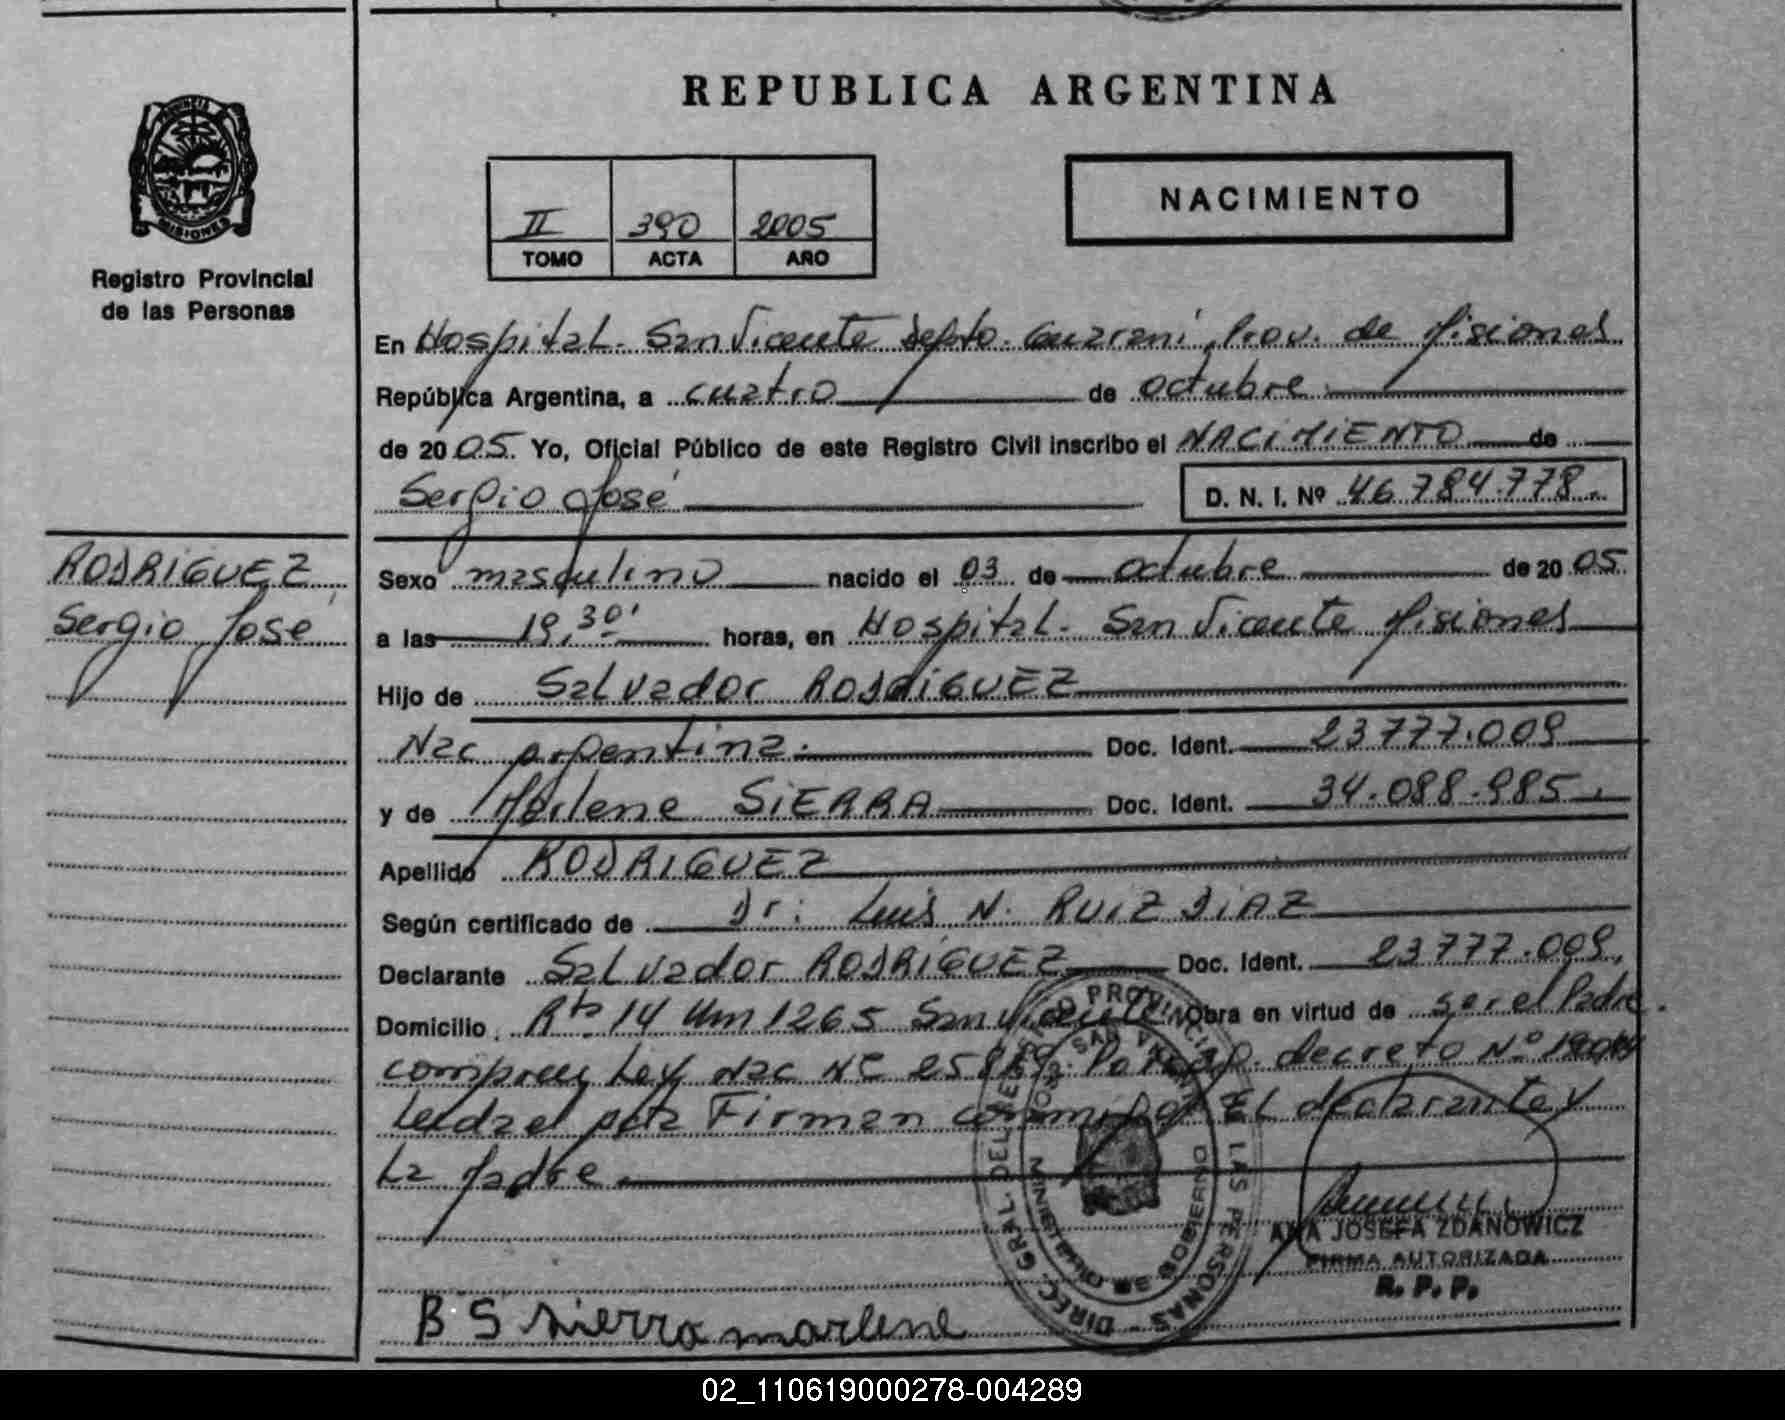 REPUBLICA ARGENTINA
PROVINCIA
MISIONES
Registro Provincial
de las Personas
II 390 2005
TOMO ACTA AÑO
NACIMIENTO
En Hospital. San Vicente Depto. Guarani, Prov. de Misiones
República Argentina, a cuatro de octubre
de 2005. Yo, Oficial Público de este Registro Civil inscribo el NACIMIENTO de
Sergio José D. N. I. Nº 46.784.778.
RODRIGUEZ
Sergio José
Sexo masculino nacido el 03 de octubre de 2005.
a las 19,30' horas, en Hospital. San Vicente Misiones
Hijo de Salvador RODRIGUEZ
Nac argentina. Doc. Ident. 23777.009
y de Marlene SIERRA Doc. Ident. 34.088.985.
Apellido RODRIGUEZ
Según certificado de Dr: Luis N. RUIZ DIAZ
Declarante Salvador RODRIGUEZ Doc. Ident. 23777.009,
Domicilio Rta 14 Km 1265 San Vicente Obra en virtud de ser el Padre.
Ley Nac decreto Nº
Leida el acta Firman conmigo El declarante y
La Madre
ANA JOSEFA ZDANOWICZ
FIRMA AUTORIZADA
R. P. P.
B S Sierra marlene
DIREC. GRAL. DEL REGISTRO PROVINCIAL DE LAS PERSONAS
MINISTERIO DE GOBIERNO
SAN VICENTE
02_110619000278-004289